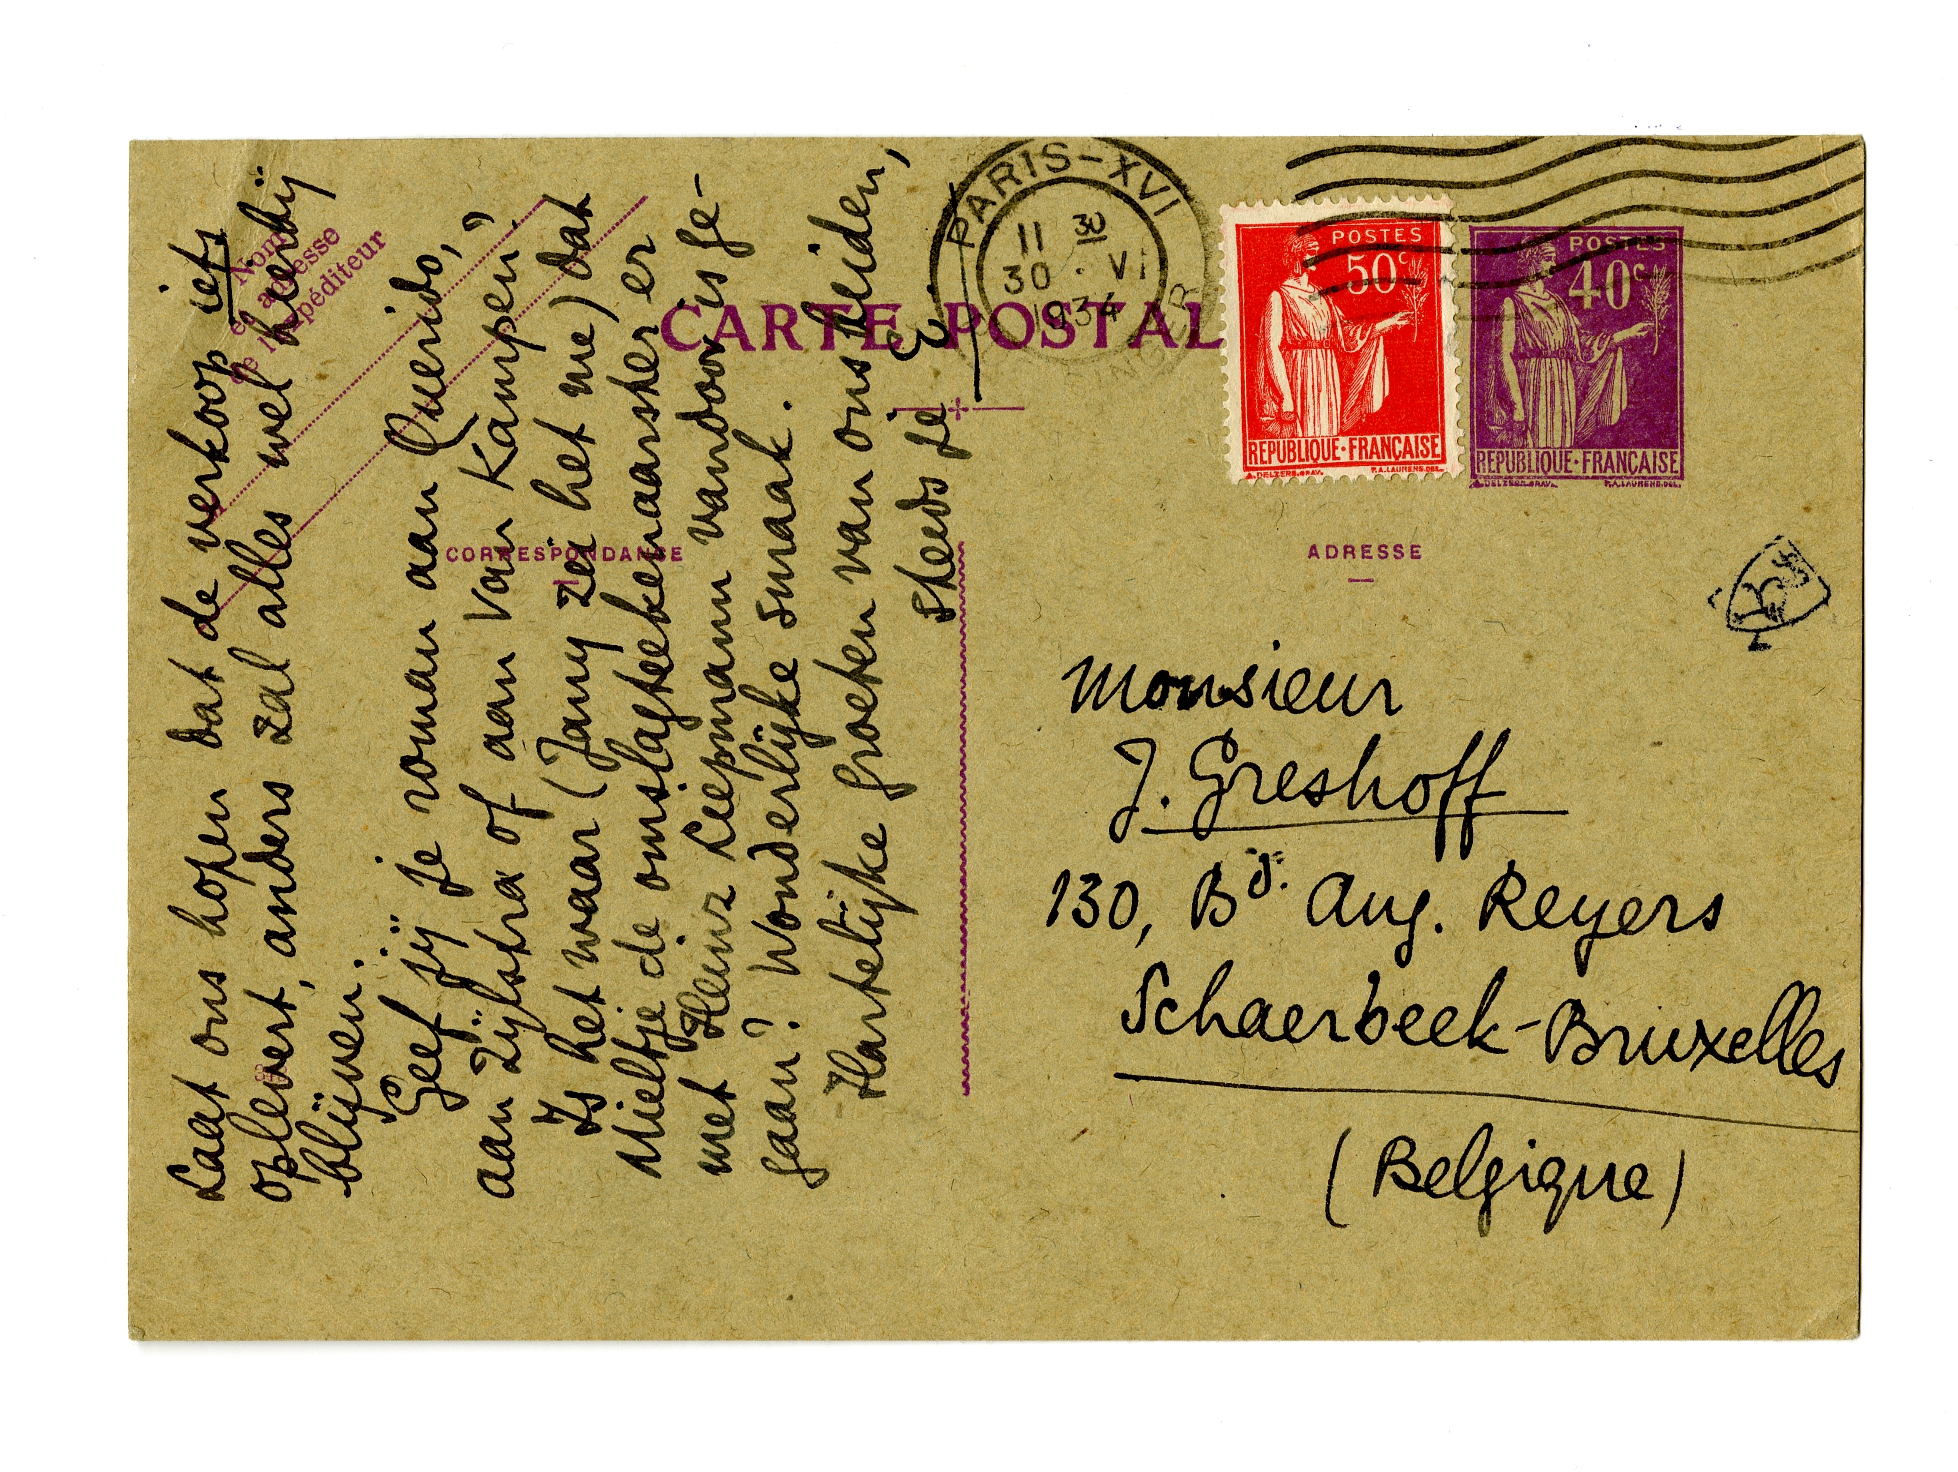 Laat ons hopen dat de verkoop iets
oplevert, anders zal alles wel herrij
blijven.
Geef jij je roman aan Querido,
aan Zijlstra of aan van Kampen?
Is het waar (Jany zei het me) dat
Mieltje de omslagteekenaarster er
met Heinz Liepmann vandoor is ge-
gaan? Wonderlijke smaak.
Hartelijke groeten van ons beiden,
steeds je E.
Nom
et adresse
de l'expéditeur
CARTE POSTALE
CORRESPONDANCE
PARIS-XVI
11 30
30 · VI
1934
SINGER
POSTES
50c
REPUBLIQUE·FRANÇAISE
A.DELZERS.GRAV. P.A.LAURENS.DEL.
POSTES
40c
REPUBLIQUE·FRANÇAISE
A.DELZERS.GRAV. P.A.LAURENS.DEL.
ADRESSE
Monsieur
J. Greshoff
130, Bd. Aug. Reyers
Schaerbeek-Bruxelles
(Belgique)